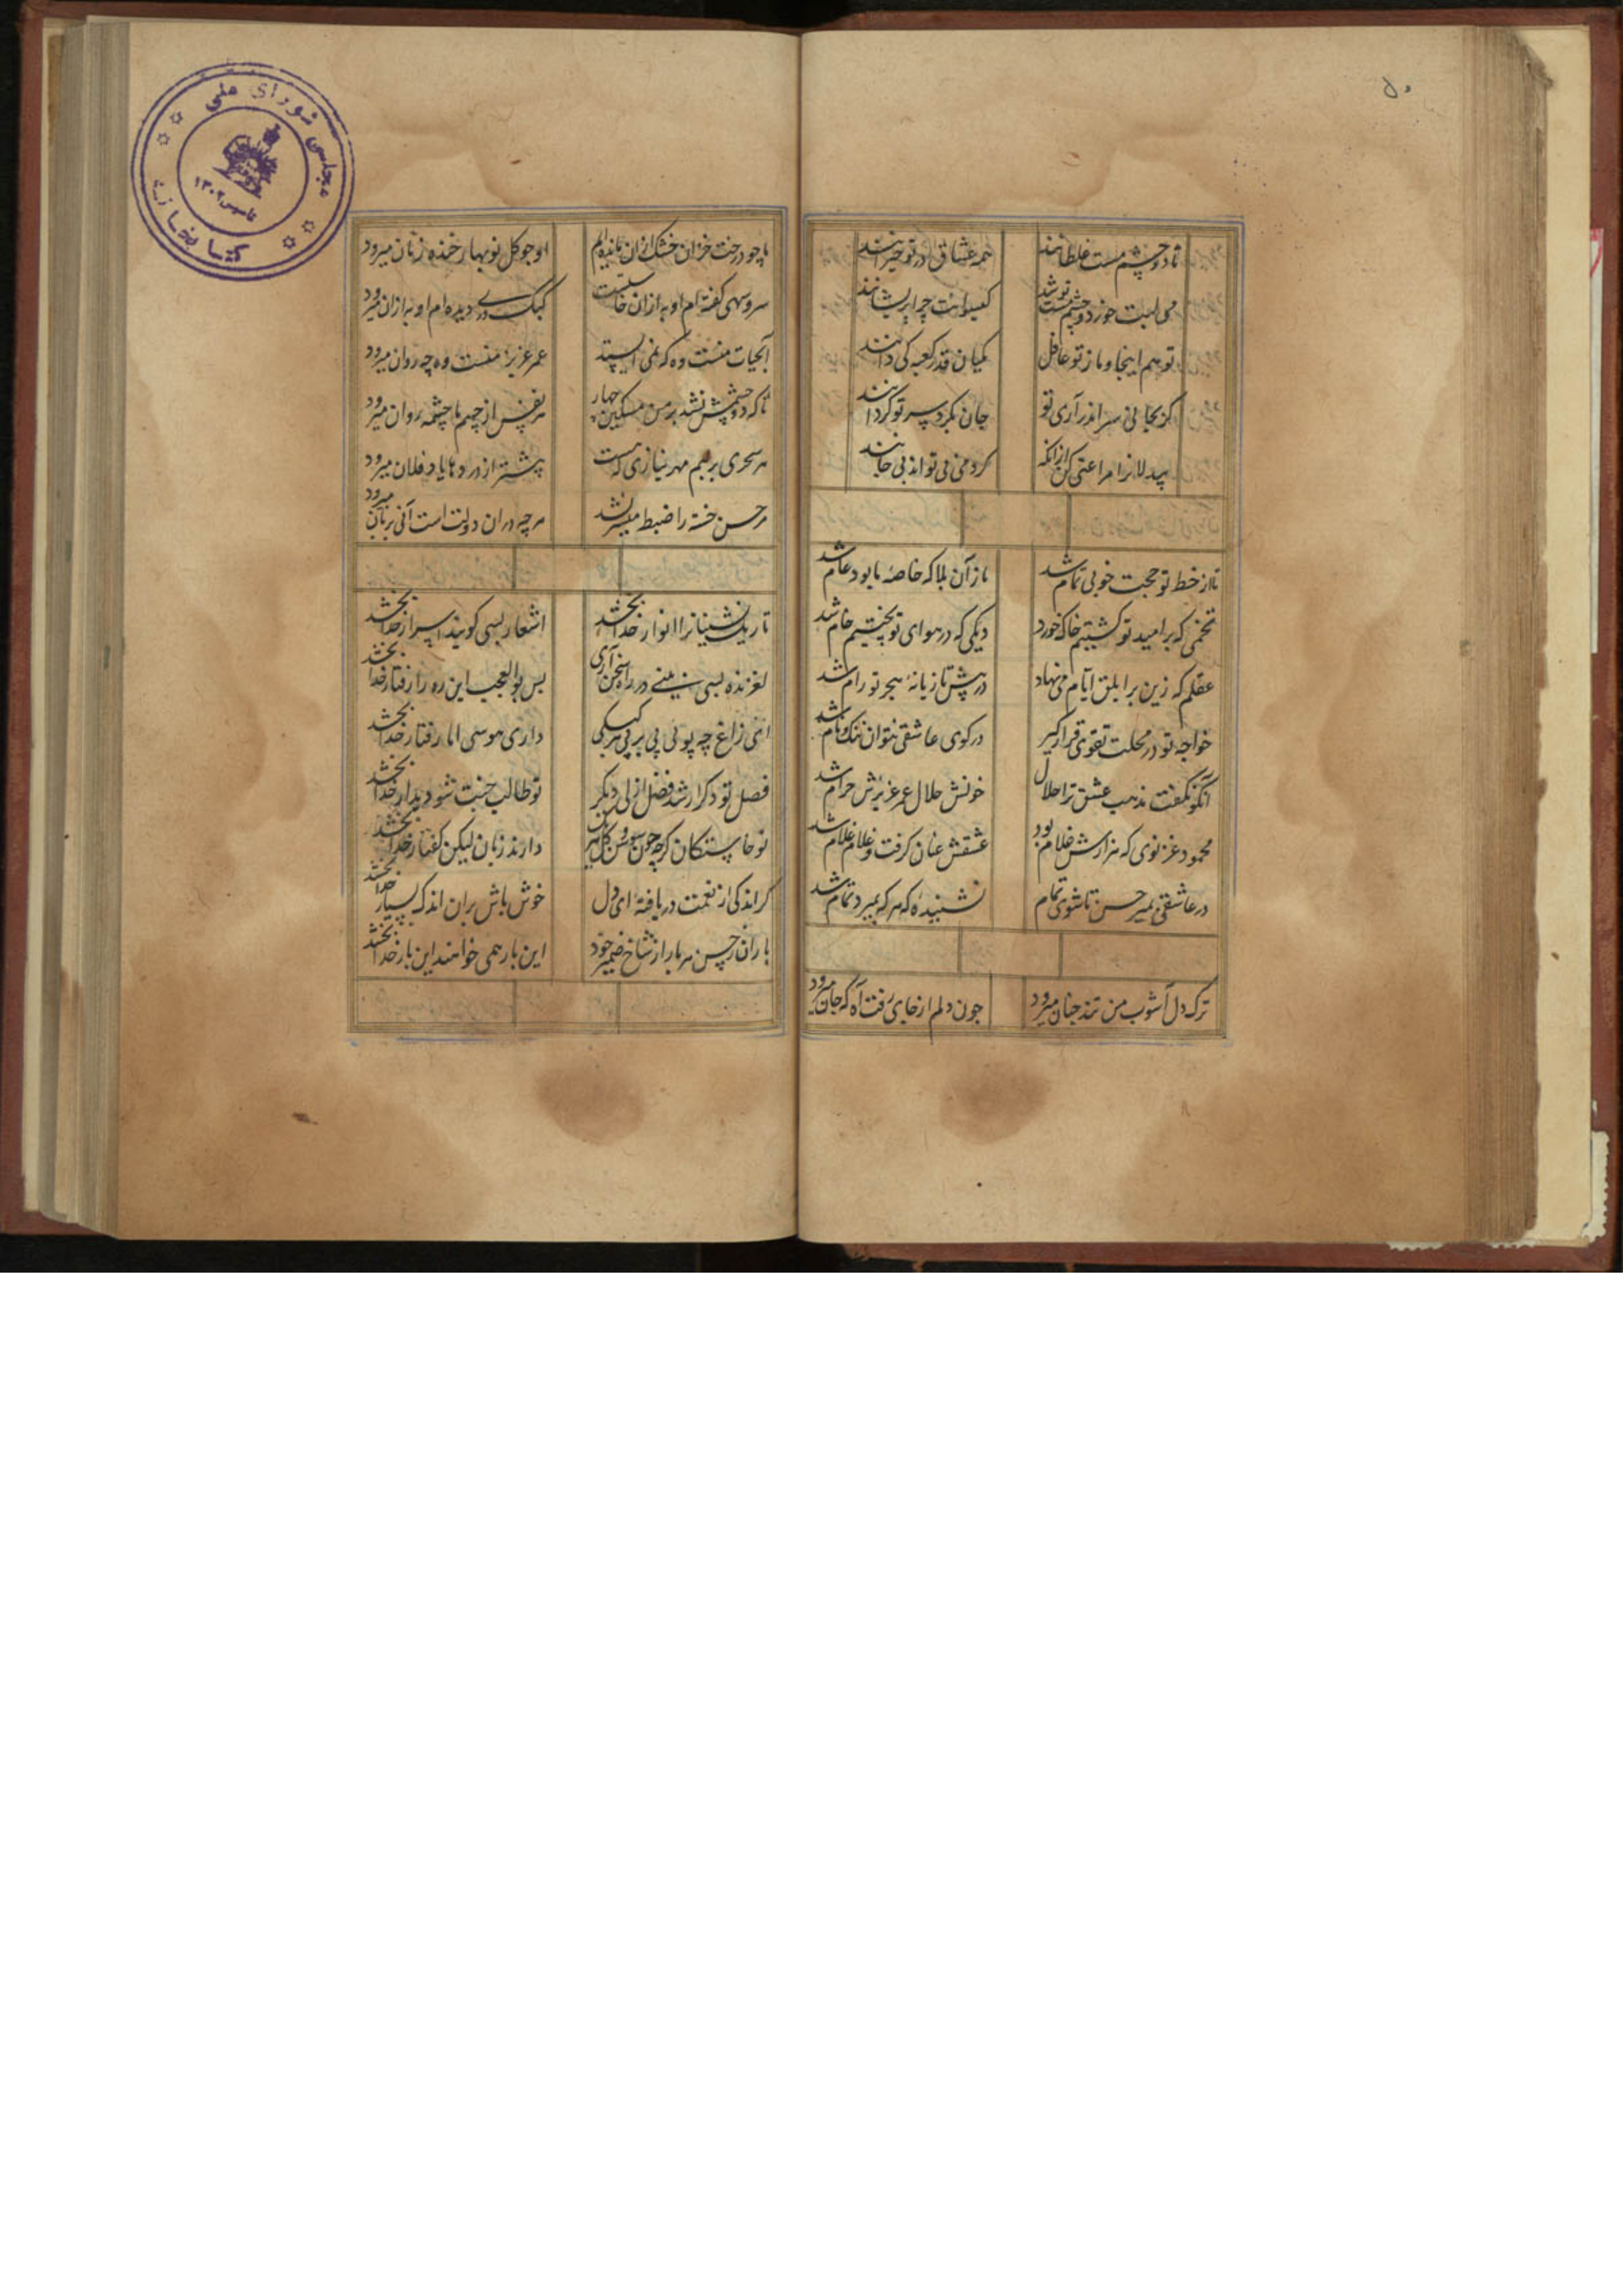 تا دو چشم مست غلطانند همه عشاق در تو حیرانند
می لبت خورد و چشم مست تو شد گیسوانت چرا پریشانند
تو هم اینجا و ما ز تو غافل مکیان قدر کعبه کی دانند
کز بجایی سر اندر آری تو جان بگرد سر تو گردانند
بیدلانرا مراعتی کن ازانکه کر دمی بی تواند بی جانند
تا از خط تو حجت خوبی تمام شد باز آن بلا که خاصه ما بود عام شد
تخمی که بر امید تو کشتیم خاک خورد دیکی که در هوای تو پختیم خام شد
عقلم که زین بر ابلق ایام می نهاد در پیش تازیانه هجر تو رام شد
خواجه تو در محلت تقوی قرار گیر در کوی عاشقی نتوان ننک و نام شد
آنکو نگفت مذهب عشق ترا حلال خونش حلال عمر عزیزش حرام شد
محمود غزنوی که هزارش غلام بود عشقش عنان گرفت و غلام غلام شد
در عاشقی بمیر حسن تا شوی تمام نشنیده که هر که بمیرد تمام شد
ترک دل آشوب من تند چنان میرود چون دلم از جای رفت آه که جان میرود
ما چو درخت خزان خشک ازان مانده ایم او چو گل نوبهار خنده زنان میرود
سرو سهی گفته ام او به ازان خاستست کبک دری دیده ام او به ازان میرود
آبحیات منست وه که نمی ایستد عمر عزیز منست وه چه روان میرود
تا که دو چشمش نشد بر من مسکین چهار هر نفس از چشم ما چشمه روان میرود
هر سحری بر لبم مهر نیازی که هست پیشتر از وردها یاد فلان میرود
بر حسن خسته را ضبط میسر نشد هر چه دران دولت است آنی بزبان میرود
تاریک نشینانرا انوار خدا بخشد اشعار بسی گویند اسرار خدا بخشد
لغزنده بسی بینی در راه سخن آری بس بوالعجب این ره را رفتار خدا بخشد
ای زاغ چه پوئی پی بر پی هر کبکی داری هوسی اما رفتار خدا بخشد
فصل تو دگر ارشد فضل ازلی دیگر تو طالب جنت شو دیدار خدا بخشد
نوخاستگان گرچه چون سوسن و گل دارند زبان لیکن گفتار خدا بخشد
گر اندکی از نعمت دریافته ای دل خوش باش بران اندک بسیار خدا بخشد
یاران ز حسن هر بار از شاخ ضمیر خود این بار همی خواهند این بار خدا بخشد
مجلس شورای ملی
کتابخانه
تاسیس ۱۳۰۲